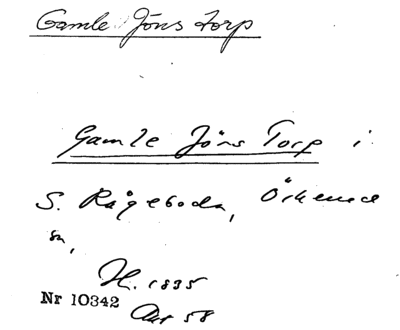 Gamle Jöns Torp
Gamle Jöns Torp i
S. Rågeboda, Örkened
sn,
H. 1835
Nr 10342
Akt 58